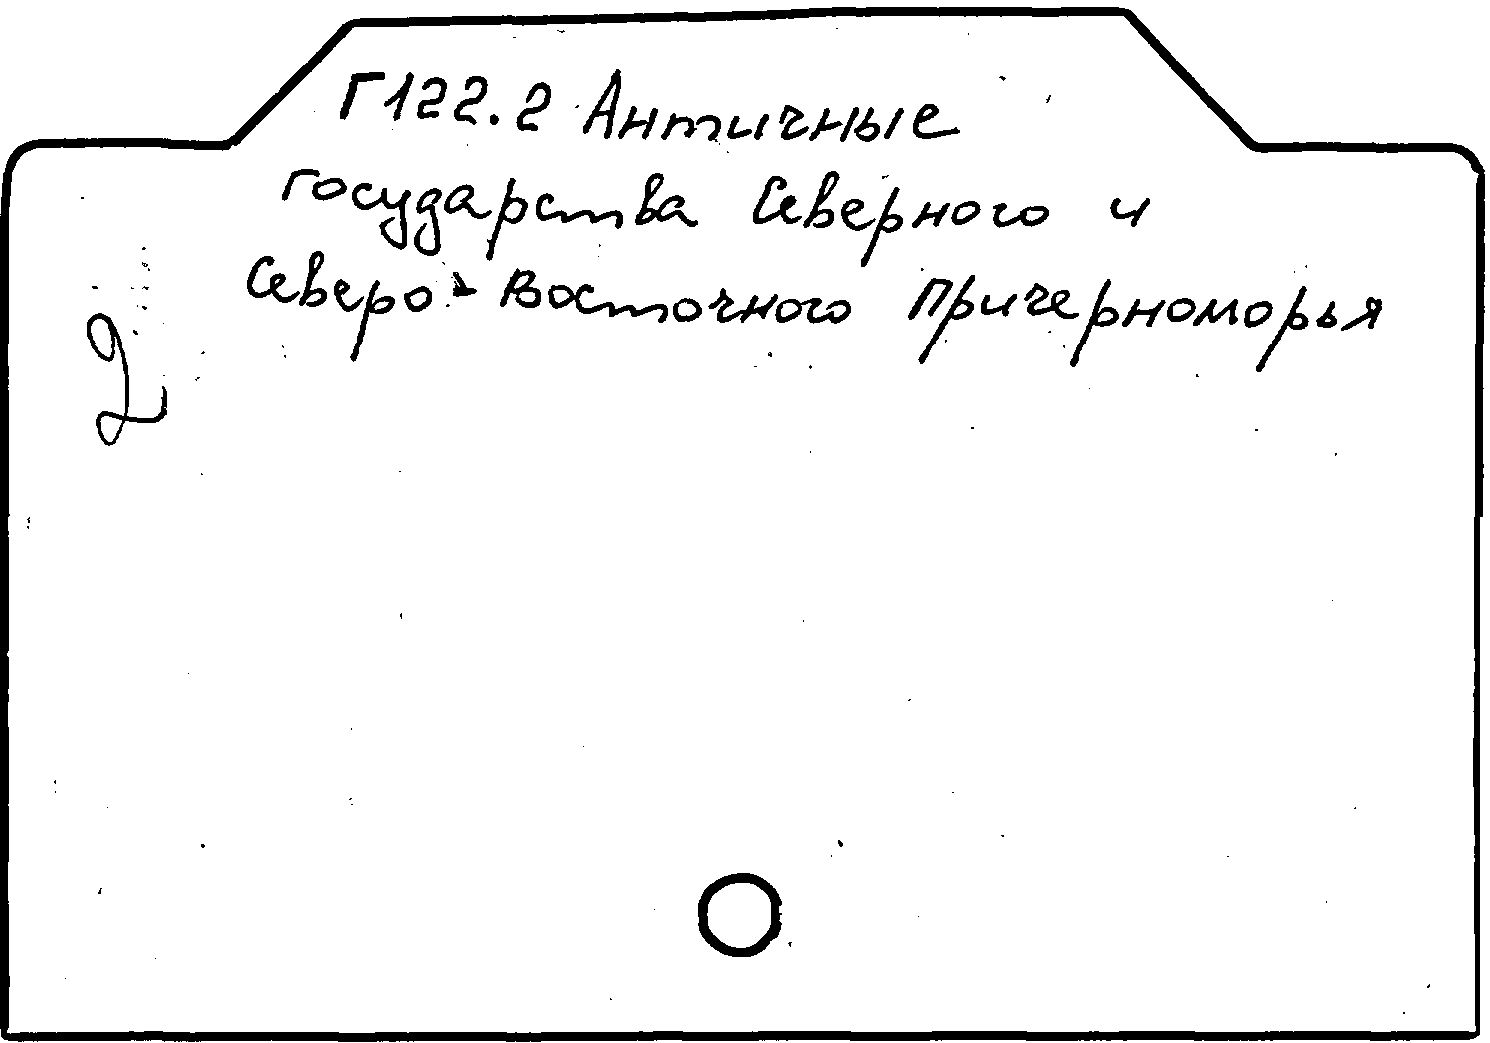 Г122.2 Античные
государства Северного и
Северо-Восточного Причерноморья
2